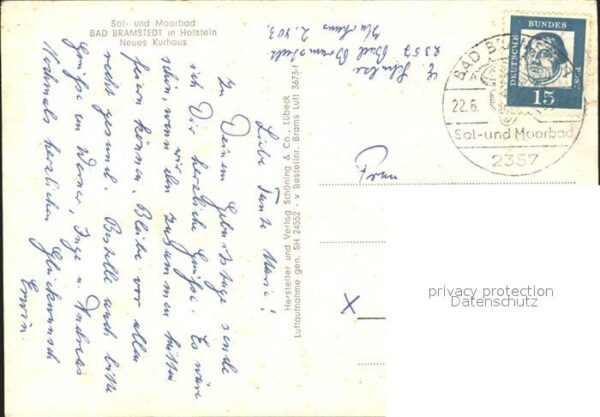 Sol- und Moorbad
BAD BRAMSTEDT in Holstein
Neues Kurhaus
Liebe Tante Marie!
Zu Deinem Geburtstage sende
ich Dir herzliche Grüße. Es wäre
schön, wenn wir ihn zusammen hätten
feiern können. Bleibe vor allem
recht gesund. Bestelle auch bitte
Grüße an Werner, Inge u. Andreas
Nochmals herzlichen Glückwunsch
Erwin.
Hersteller und Verlag Schöning & Co., Lübeck
Luftaufnahme gen. SH 24552 - v Bestellnr. Brams Luft 3675-1
2357 Bad Bramstedt
Kurhaus Z. 403.
BAD BRAMSTEDT
22.6.
Sol-und Moorbad
2357
DEUTSCHE
BUNDES
POST
15
Frau
X
privacy protection
Datenschutz